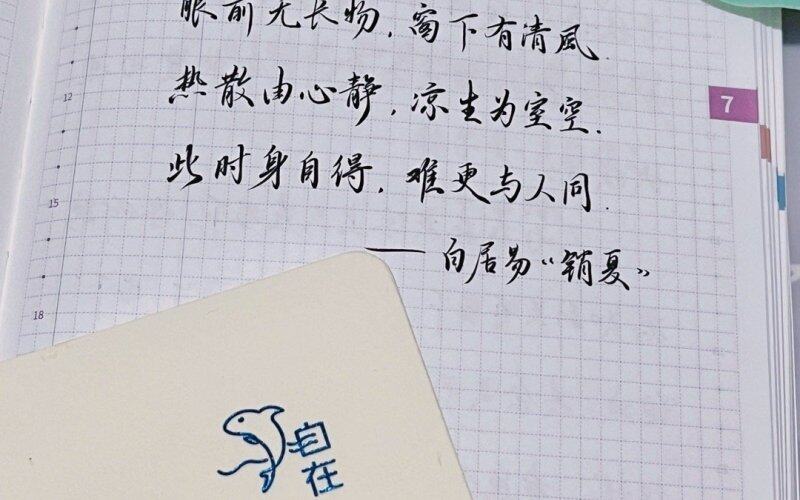 眼前无长物，窗下有清風.
热散由心静，凉生为室空.
此时身自得，难更与人同.
——白居易《销夏》
7
12
15
18
自在